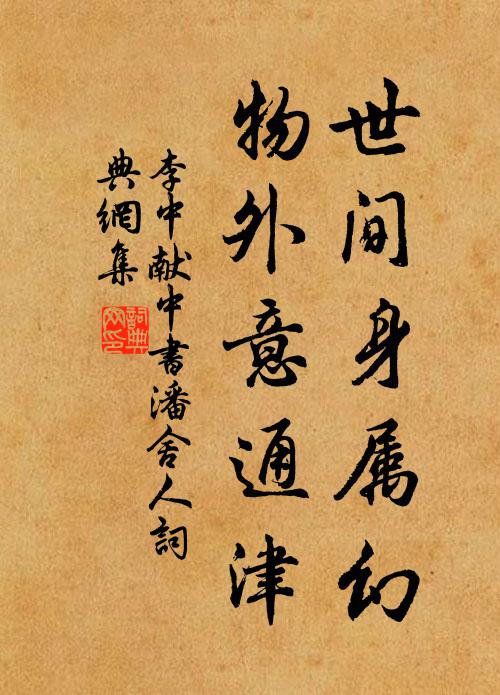 世间身属幻
物外意通津
李中献中書潘舍人詞
典網集
詞典
网印